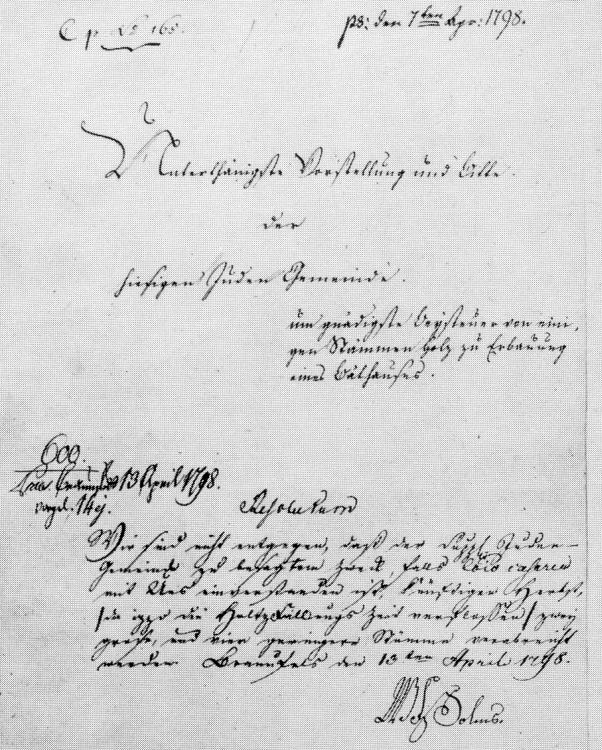 ps: den 7ten Apr: 1798.
Unterthänigste Vorstellung und Bitte
der
hiesigen Juden Gemeinde.
um gnädigste Beysteuer von eini,
gen Stämmen Holz zu Erbauung
eines Bäthauses.
600.
13 April 1798.
Resolutum
Wir sind nicht entgegen, daß der Juden-
Gemeinde zu besagtem Zweck, falls
mit Uns einverstanden ist, künftigen Herbst,
/da izzo die Holtzfällungs Zeit verflossen/ zwey
große, und vier geringere Stämme verabreicht
werden. Braunfels den 13ten April 1798.
Solms.